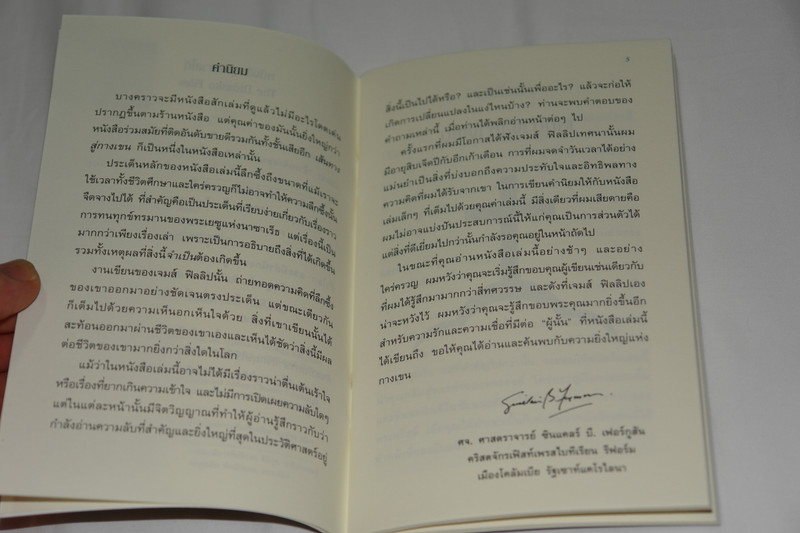 คำนิยม
บางคราวจะมีหนังสือสักเล่มที่ดูแล้วไม่มีอะไรโดดเด่น
ปรากฏขึ้นตามร้านหนังสือ แต่คุณค่าของมันนั้นยิ่งใหญ่กว่า
หนังสือร่วมสมัยที่ติดอันดับขายดีรวมกันทั้งชั้นเสียอีก เส้นทาง
สู่กางเขน ก็เป็นหนึ่งในหนังสือเหล่านั้น
ประเด็นหลักของหนังสือเล่มนี้ลึกซึ้งถึงขนาดที่แม้เราจะ
ใช้เวลาทั้งชีวิตศึกษาและใคร่ครวญก็ไม่อาจทำให้ความลึกซึ้งนั้น
จืดจางไปได้ ที่สำคัญคือเป็นประเด็นที่เรียบง่ายเกี่ยวกับเรื่องราว
การทนทุกข์ทรมานของพระเยซูแห่งนาซาเร็ธ แต่เรื่องนี้เป็น
มากกว่าเพียงเรื่องเล่า เพราะเป็นการอธิบายถึงสิ่งที่ได้เกิดขึ้น
รวมทั้งเหตุผลที่สิ่งนี้จำเป็นต้องเกิดขึ้น
งานเขียนของเจมส์ ฟิลลิปนั้น ถ่ายทอดความคิดที่ลึกซึ้ง
ของเขาออกมาอย่างชัดเจนตรงประเด็น แต่ขณะเดียวกัน
ก็เต็มไปด้วยความเห็นอกเห็นใจด้วย สิ่งที่เขาเขียนนั้นได้
สะท้อนออกมาผ่านชีวิตของเขาเองและเห็นได้ชัดว่าสิ่งนี้มีผล
ต่อชีวิตของเขามากยิ่งกว่าสิ่งใดในโลก
แม้ว่าในหนังสือเล่มนี้อาจไม่ได้มีเรื่องราวน่าตื่นเต้นเร้าใจ
หรือเรื่องที่ยากเกินความเข้าใจ และไม่มีการเปิดเผยความลับใดๆ
แต่ในแต่ละหน้านั้นมีจิตวิญญาณที่ทำให้ผู้อ่านรู้สึกราวกับว่า
กำลังอ่านความลับที่สำคัญและยิ่งใหญ่ที่สุดในประวัติศาสตร์อยู่
5
สิ่งนี้เป็นไปได้หรือ? และเป็นเช่นนั้นเพื่ออะไร? แล้วจะก่อให้
เกิดการเปลี่ยนแปลงในแง่ไหนบ้าง? ท่านจะพบคำตอบของ
คำถามเหล่านี้ เมื่อท่านได้พลิกอ่านหน้าต่อๆ ไป
ครั้งแรกที่ผมมีโอกาสได้ฟังเจมส์ ฟิลลิปเทศนานั้นผม
มีอายุสิบเจ็ดปีกับอีกเก้าเดือน การที่ผมจดจำวันเวลาได้อย่าง
แม่นยำเป็นสิ่งที่บ่งบอกถึงความประทับใจและอิทธิพลทาง
ความคิดที่ผมได้รับจากเขา ในการเขียนคำนิยมให้กับหนังสือ
เล่มเล็กๆ ที่เต็มไปด้วยคุณค่าเล่มนี้ มีสิ่งเดียวที่ผมเสียดายคือ
ผมไม่อาจแบ่งปันประสบการณ์นี้ให้แก่คุณเป็นการส่วนตัวได้
แต่สิ่งที่ดีเยี่ยมไปกว่านั้นกำลังรอคุณอยู่ในหน้าถัดไป
ในขณะที่คุณอ่านหนังสือเล่มนี้อย่างช้าๆ และอย่าง
ใคร่ครวญ ผมหวังว่าคุณจะเริ่มรู้สึกขอบคุณผู้เขียนเช่นเดียวกับ
ที่ผมได้รู้สึกมามากกว่าสี่ทศวรรษ และดังที่เจมส์ ฟิลลิปเอง
น่าจะหวังไว้ ผมหวังว่าคุณจะรู้สึกขอบพระคุณมากยิ่งขึ้นอีก
สำหรับความรักและความเชื่อที่มีต่อ “ผู้นั้น” ที่หนังสือเล่มนี้
ได้เขียนถึง ขอให้คุณได้อ่านและค้นพบกับความยิ่งใหญ่แห่ง
กางเขน
ศจ. ศาสตราจารย์ ซินแคลร์ บี. เฟอร์กูสัน
คริสตจักรเฟิสท์เพรสไบทีเรียน รีฟอร์ม
เมืองโคลัมเบีย รัฐเซาท์แคโรไลนา